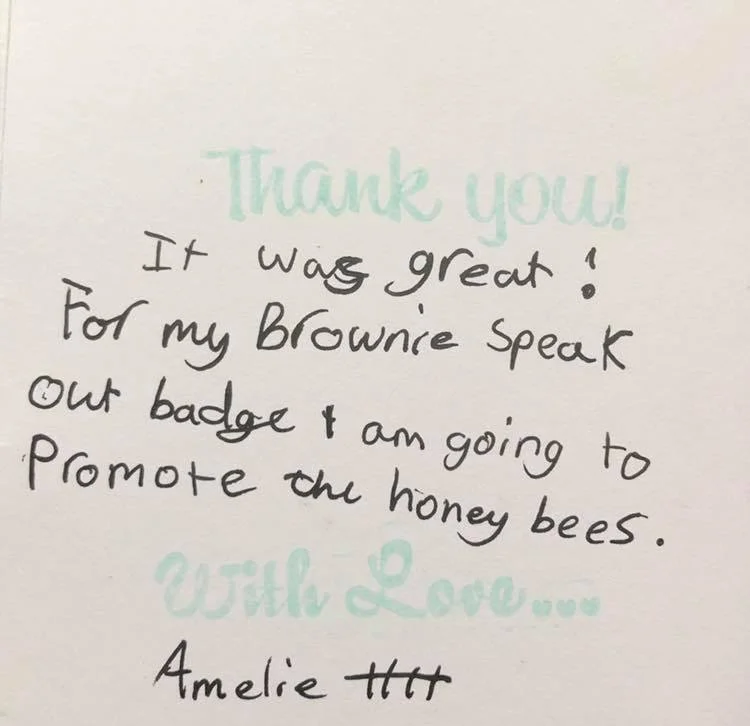 Thank you!
It was great!
For my Brownie Speak
out badge I am going to
Promote the honey bees.
With Love...
Amelie